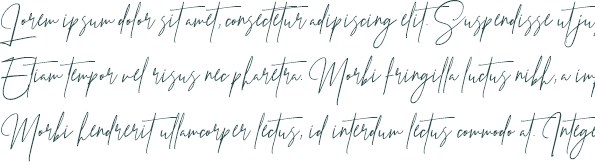 Lorem ipsum dolor sit amet, consectetur adipiscing elit. Suspendisse ut jus
Etiam tempor vel risus nec pharetra. Morbi fringilla luctus nibh, a imp
Morbi hendrerit ullamcorper lectus, id interdum lectus commodo at. Intege